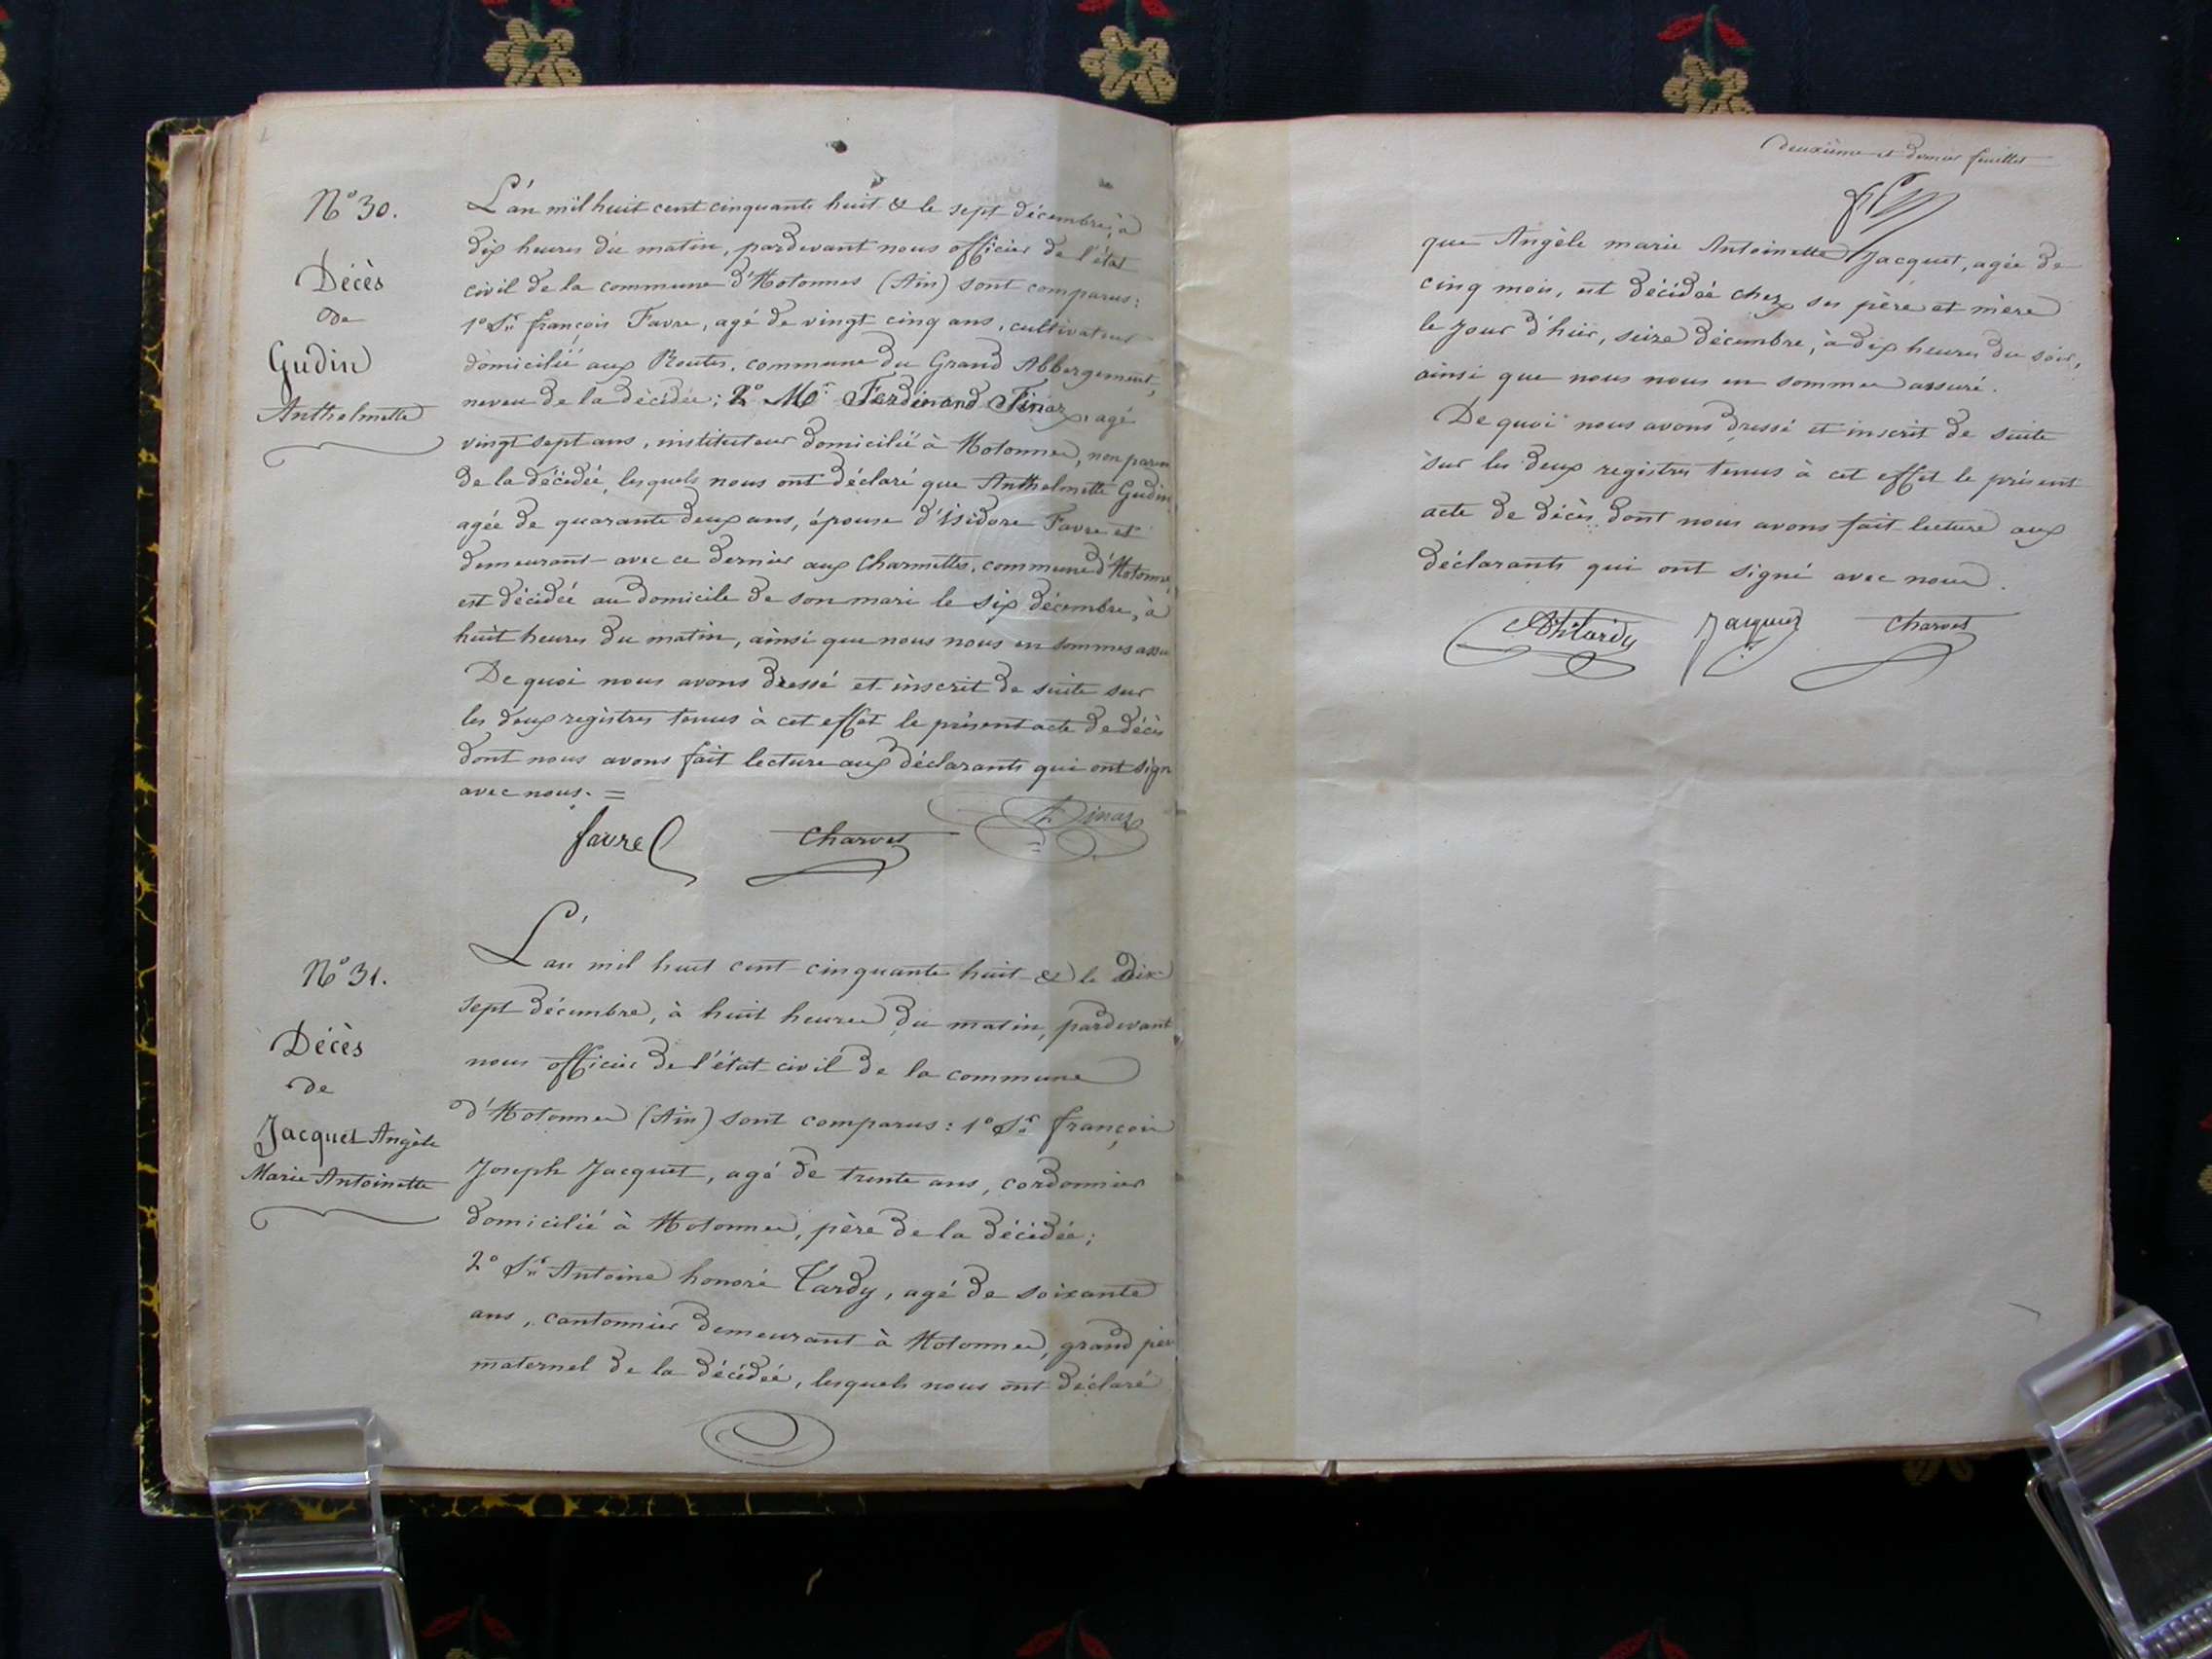 N° 30.
Décès
de
Gudin
Anthelmette
L'an mil huit cent cinquante huit & le sept décembre, à
dix heures du matin, pardevant nous officier de l'état
civil de la commune d'Hotonnes (Ain) sont comparus:
1° Sr. françois Favre, agé de vingt cinq ans, cultivateur
domicilié aux Routes, commune du Grand Abbergement,
neveu de la décédée; 2° Mr. Ferdinand Finaz, agé
vingt sept ans, instituteur domicilié à Hotonnes, non paren
de la décédée, lesquels nous ont déclaré que Anthelmette Gudin
agée de quarante deux ans, épouse d'isidore Favre et
demeurant avec ce dernier aux Charmettes, commune d'Hotonnes,
est décédée au domicile de son mari le six décembre, à
huit heures du matin, ainsi que nous nous en sommes assu
De quoi nous avons dressé et inscrit de suite sur
les deux registres tenus à cet effet le présent acte de décès
dont nous avons fait lecture aux déclarants qui ont sign
avec nous. =
favre Charvet Finaz
N° 31.
Décès
de
Jacquet Angèle
Marie Antoinette
L'an mil huit cent cinquante huit & le Dix
sept décembre, à huit heures du matin, pardevant
nous officier de l'état civil de la commune
d'Hotonnes (Ain) sont comparus: 1° Sr. françois
Joseph Jacquet, agé de trente ans, cordonnier
domicilié à Hotonnes, père de la décédée;
2° Sr. Antoine honoré Tardy, agé de soixante
ans, cantonnier demeurant à Hotonnes, grand pèr
maternel de la décédée, lesquels nous ont déclaré
deuxième et dernier feuillet
que Angèle marie Antoinette Jacquet, agée de
cinq mois, est décédée chez ses père et mère
le jour d'hier, seize décembre, à dix heures du soir,
ainsi que nous nous en sommes assuré.
De quoi nous avons dressé et inscrit de suite
sur les deux registres tenus à cet effet le présent
acte de décès dont nous avons fait lecture aux
déclarants qui ont signé avec nous.
AhTardy Jacquet Charvet